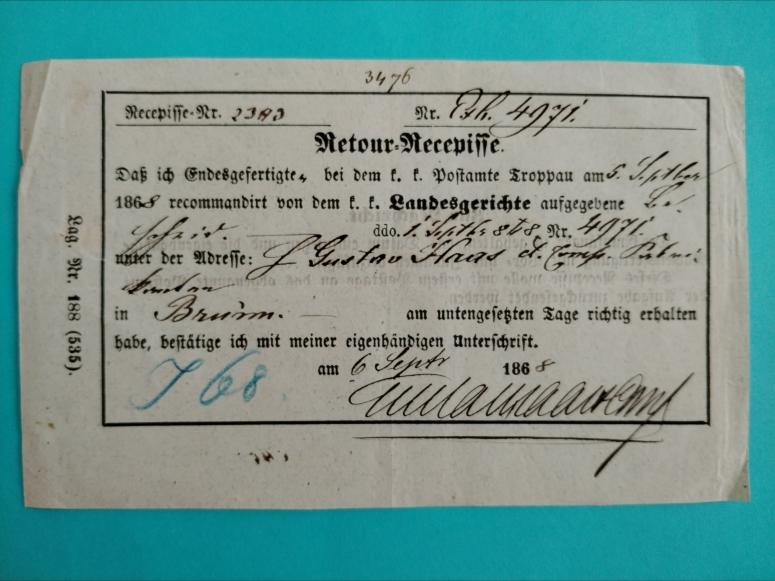 3476
Recepisse-Nr. 2383 Nr. 4971.
Retour-Recepisse.
Daß ich Endesgefertigte bei dem k. k. Postamte Troppau am 5. Septber
1868 recommandirt von dem k. k. Landesgerichte aufgegebene Be-
scheid ddo. 1. Septbr 868 Nr. 4971.
unter der Adresse: Gustav Haas & Comp. Fabri-
kanten
in Brünn. am untengesetzten Tage richtig erhalten
habe, bestätige ich mit meiner eigenhändigen Unterschrift.
am 6 Septr 1868
68
Lag. Nr. 188 (535).